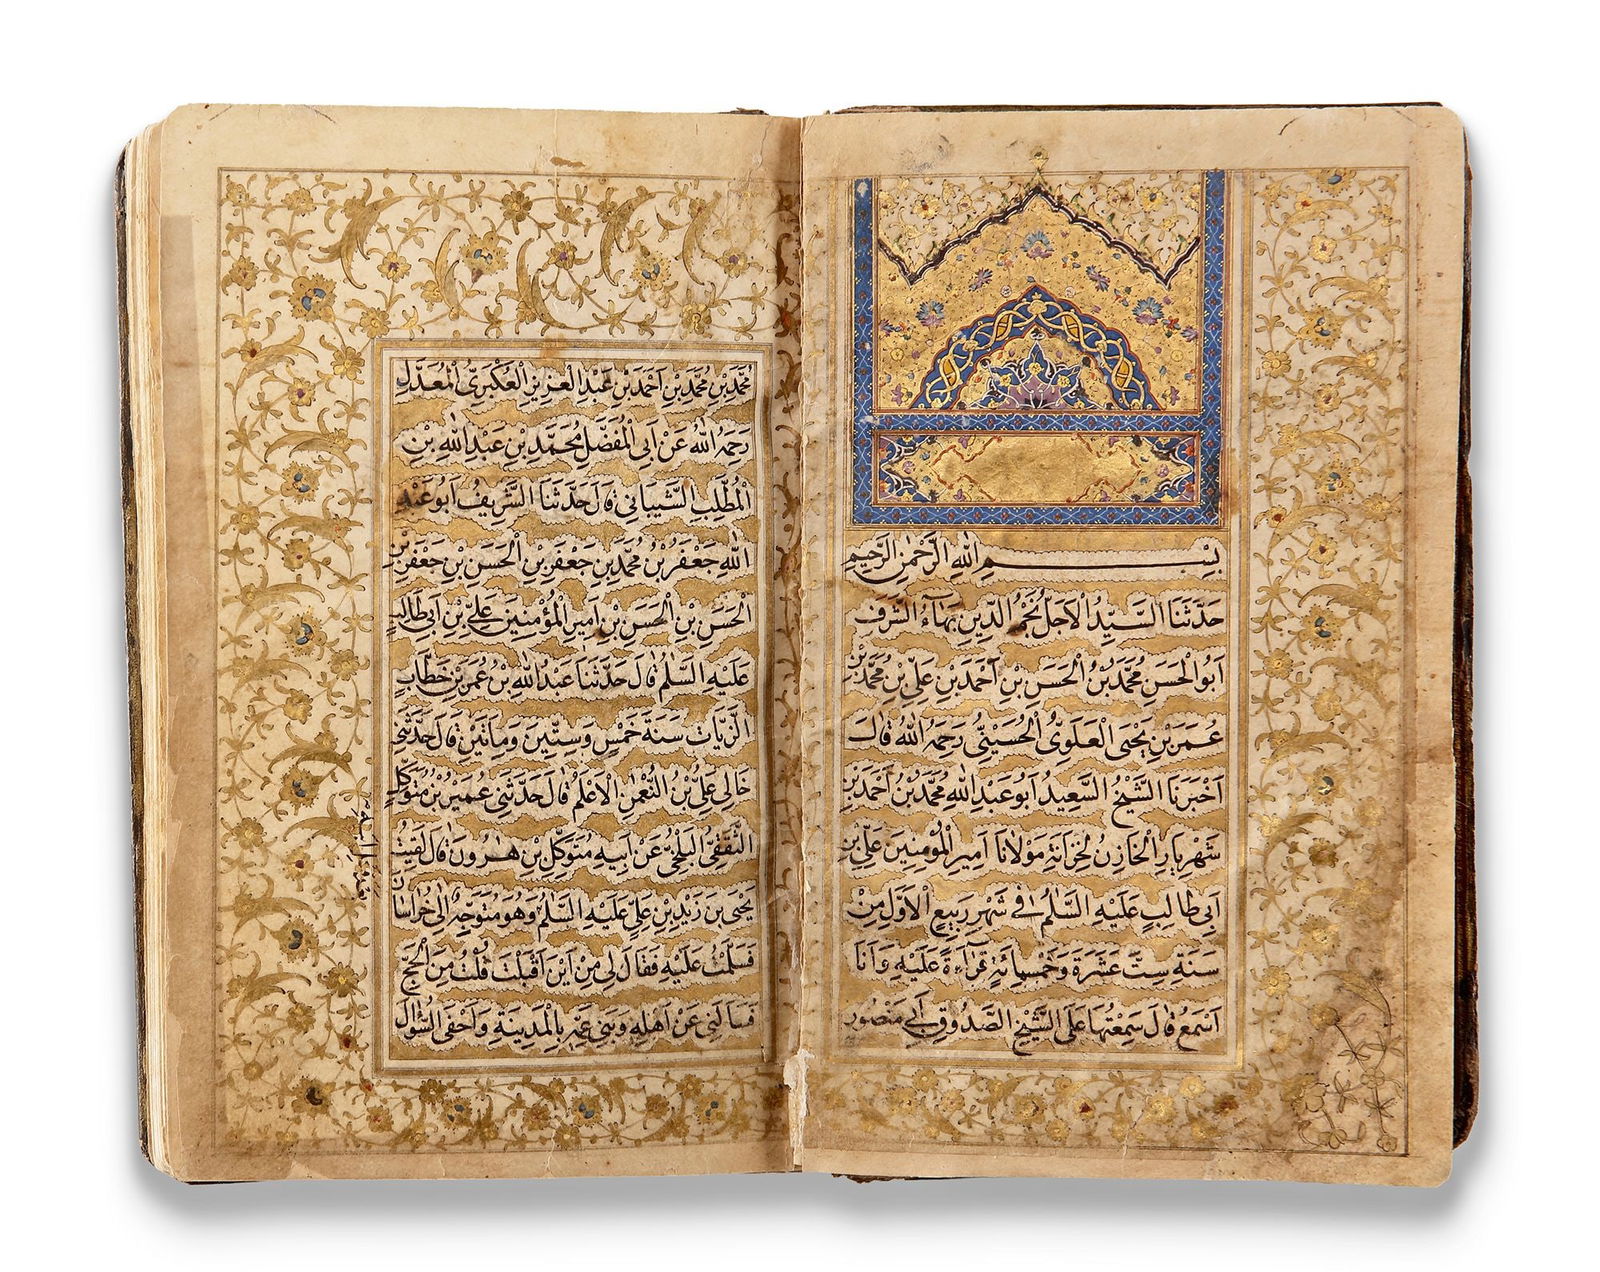 بِسْمِ اللهِ الرَّحْمٰنِ الرَّحِيمِ
حَدَّثَنَا السَّيِّدُ الْاَجَلُّ نَجْمُ الدِّينِ بَهَآءُ الشَّرَفِ
اَبُو الْحَسَنِ مُحَمَّدُ بْنُ الْحَسَنِ بْنِ اَحْمَدَ بْنِ عَلِيِّ بْنِ مُحَمَّدِ بْنِ
عُمَرَ بْنِ يَحْيَى الْعَلَوِيُّ الْحُسَيْنِيُّ رَحِمَهُ اللهُ قَالَ
اَخْبَرَنَا الشَّيْخُ السَّعِيدُ اَبُو عَبْدِ اللهِ مُحَمَّدُ بْنُ اَحْمَدَ بْنِ
شَهْرِيَارَ الْخَازِنُ لِخِزَانَةِ مَوْلَانَا اَمِيرِ الْمُؤْمِنِينَ عَلِيِّ بْنِ
اَبِي طَالِبٍ عَلَيْهِ السَّلٰمُ فِي شَهْرِ رَبِيعِ الْاَوَّلِ مِنْ
سَنَةِ سِتَّ عَشَرَةَ وَخَمْسِمِائَةٍ قِرَاءَةً عَلَيْهِ وَاَنَا
اَسْمَعُ قَالَ سَمِعْتُهَا عَلَى الشَّيْخِ الصَّدُوقِ اَبِي مَنْصُورٍ
مُحَمَّدِ بْنِ مُحَمَّدِ بْنِ اَحْمَدَ بْنِ عَبْدِ الْعَزِيزِ الْعُكْبَرِيِّ الْمُعَدَّلِ
رَحِمَهُ اللهُ عَنْ اَبِي الْمُفَضَّلِ مُحَمَّدِ بْنِ عَبْدِ اللهِ بْنِ
الْمُطَّلِبِ الشَّيْبَانِيِّ قَالَ حَدَّثَنَا الشَّرِيفُ اَبُو عَبْدِ
اللهِ جَعْفَرُ بْنُ مُحَمَّدِ بْنِ جَعْفَرِ بْنِ الْحَسَنِ بْنِ جَعْفَرِ بْنِ
الْحَسَنِ بْنِ الْحَسَنِ بْنِ اَمِيرِ الْمُؤْمِنِينَ عَلِيِّ بْنِ اَبِي طَالِبٍ
عَلَيْهِ السَّلٰمُ قَالَ حَدَّثَنَا عَبْدُ اللهِ بْنُ عُمَرَ بْنِ خَطَّابٍ
الزَّيَّاتُ سَنَةَ خَمْسٍ وَسِتِّينَ وَمِاتَيْنِ قَالَ حَدَّثَنِي
خَالِي عَلِيُّ بْنُ النُّعْمٰنِ الْاَعْلَمُ قَالَ حَدَّثَنِي عُمَيْرُ بْنُ مُتَوَكِّلٍ
الثَّقَفِيُّ الْبَلْخِيُّ عَنْ اَبِيهِ مُتَوَكِّلِ بْنِ هٰرُونَ قَالَ لَقِيتُ
يَحْيَى بْنَ زَيْدِ بْنِ عَلِيٍّ عَلَيْهِ السَّلٰمُ وَهُوَ مُتَوَجِّهٌ اِلٰى خُرَاسَانَ
فَسَلَّمْتُ عَلَيْهِ فَقَالَ لِي مِنْ اَيْنَ اَقْبَلْتَ قُلْتُ مِنَ الْحَجِّ
فَسَاَلَنِي عَنْ اَهْلِهِ وَبَنِي عَمِّهِ بِالْمَدِينَةِ وَاَحْفَى السُّؤَالَ